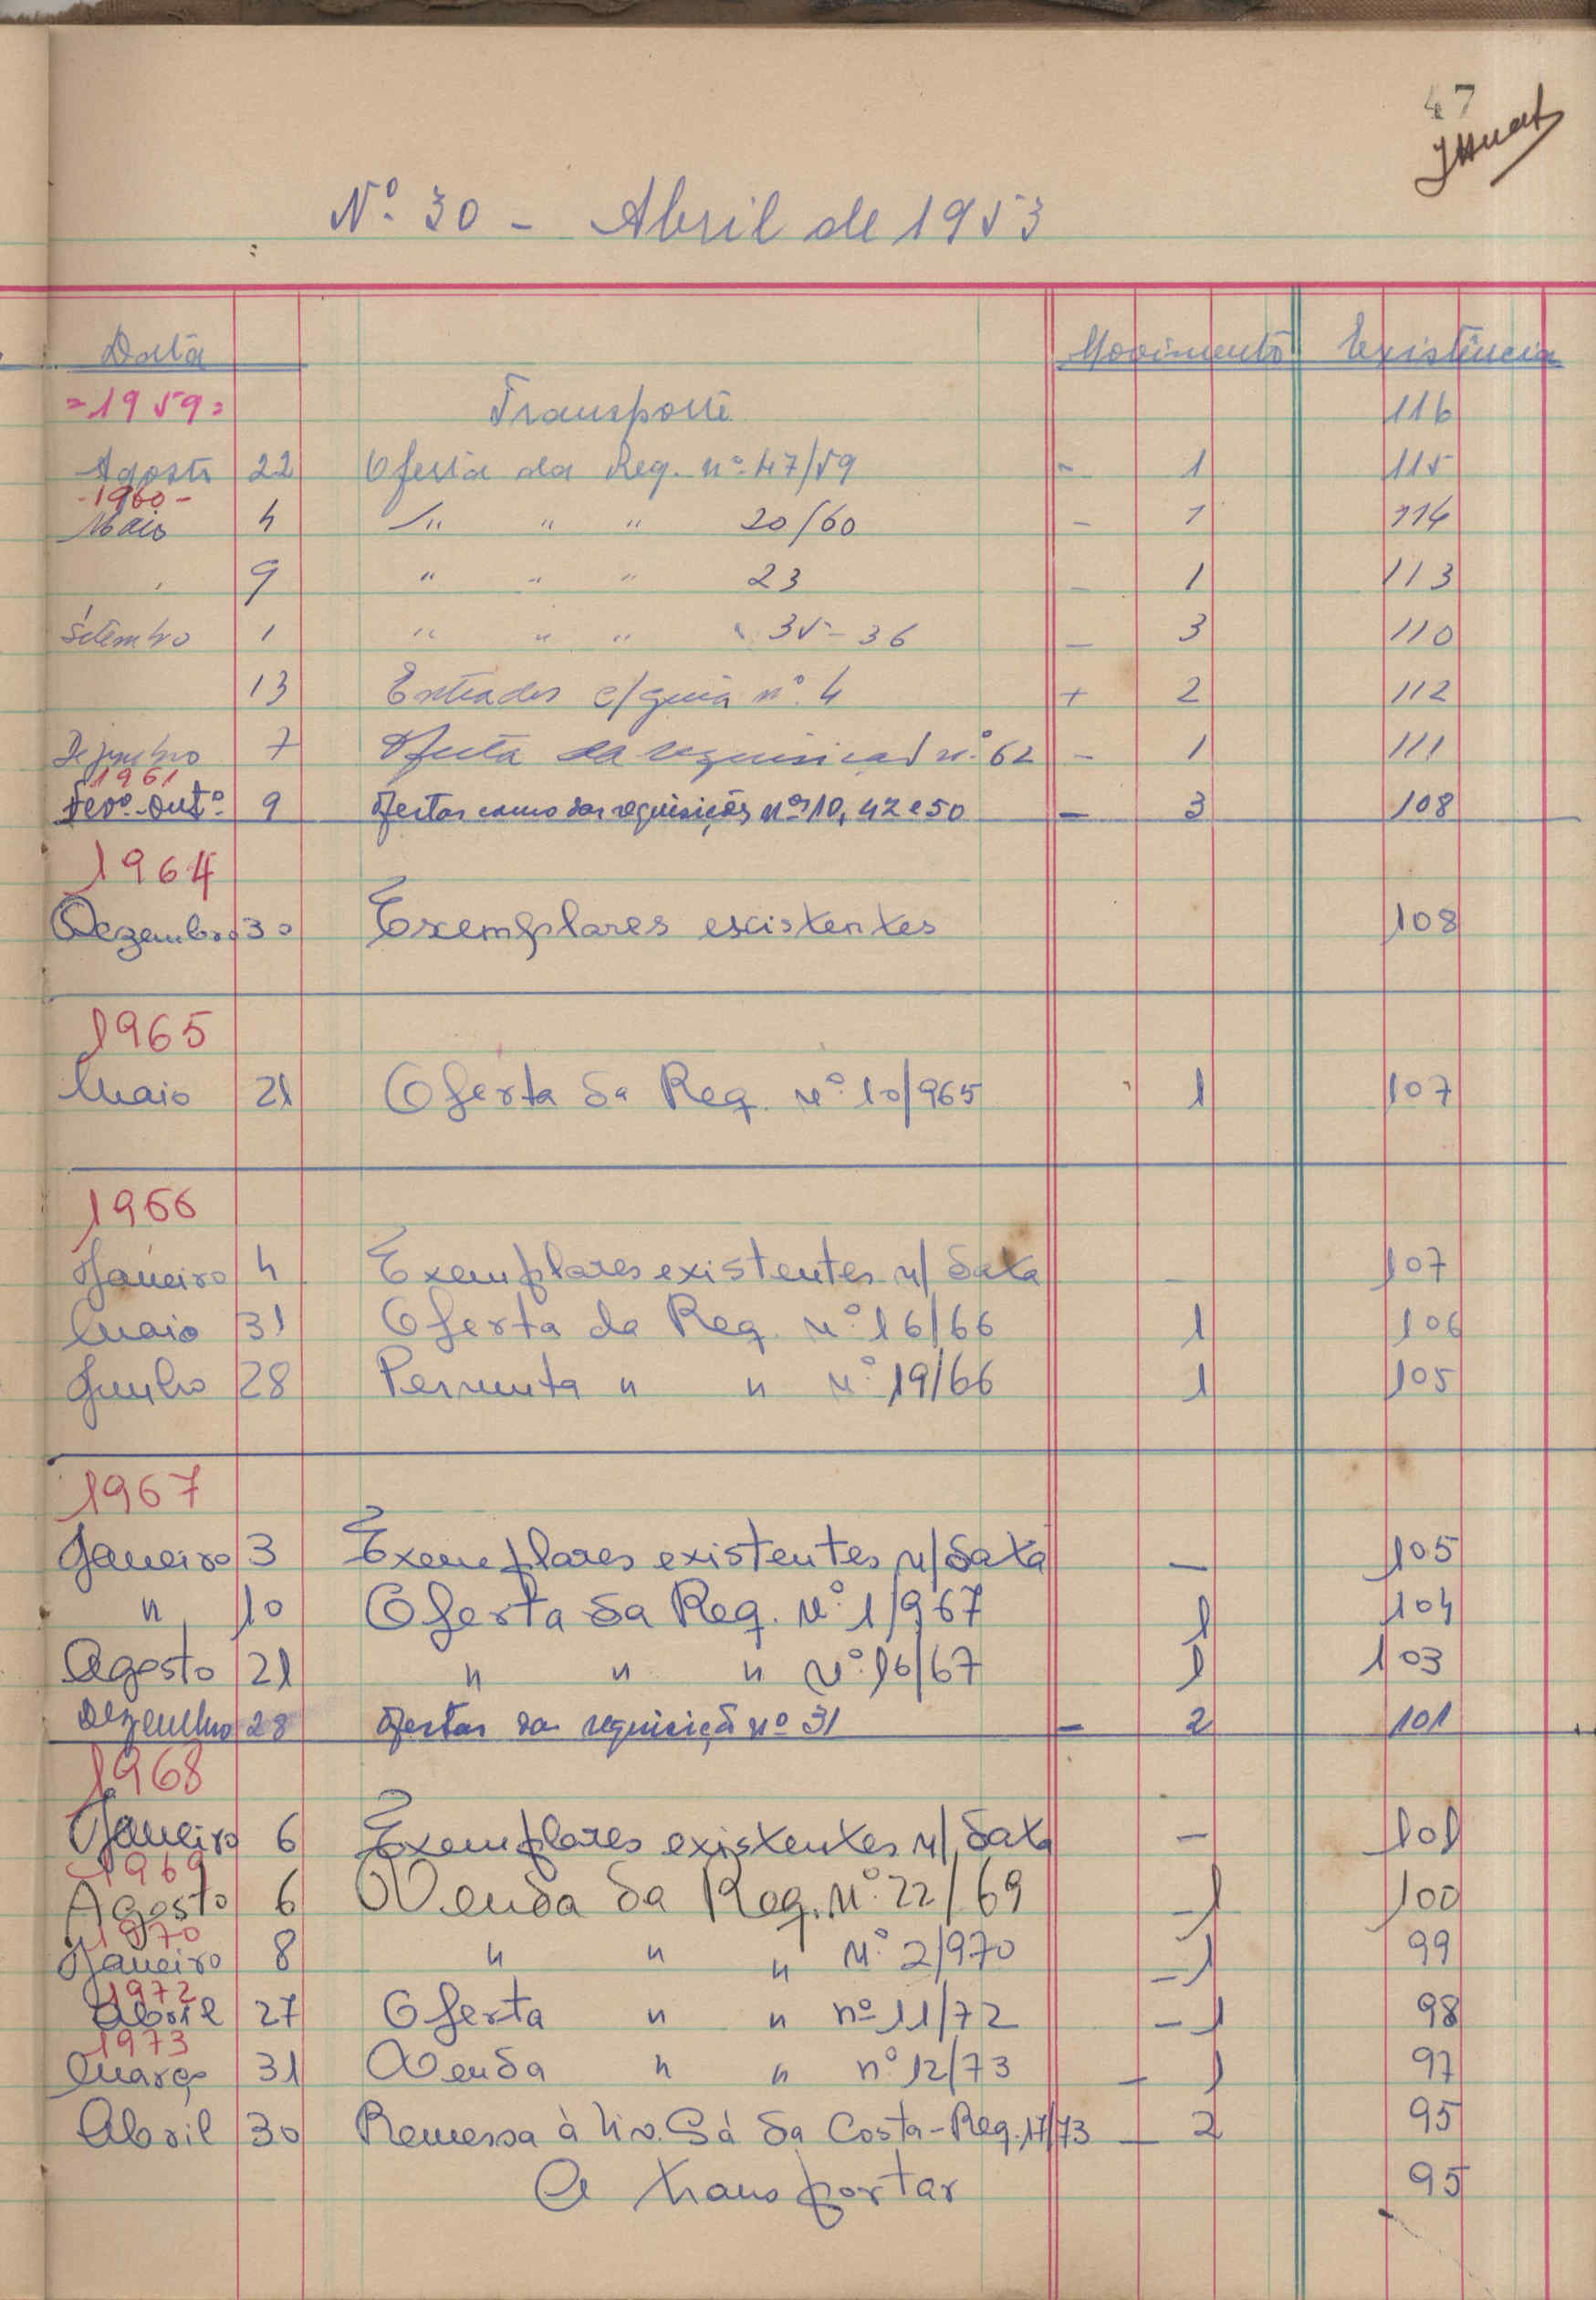 47
Nº 30 - Abril de 1953
Data Movimento Existência
=1959= Transporte 116
Agosto 22 Oferta da Req. nº 47/59 - 1 115
-1960-
Maio 4 " " " 20/60 - 1 114
" 9 " " " 23 - 1 113
Setembro 1 " " " 35-36 - 3 110
13 Entrados c/guia nº 4 + 2 112
Dezembro 7 Oferta da requisição nº 62 - 1 111
1961
Fevº-outº 9 Ofertas como das requisições nºs 10, 42 e 50 - 3 108
1964
Dezembro 30 Exemplares existentes 108
1965
Maio 21 Oferta da Req. Nº 10/965 1 107
1966
Janeiro 4 Exemplares existentes n/ data - 107
Maio 31 Oferta da Req. Nº 16/66 1 106
Junho 28 Permuta " " Nº 19/66 1 105
1967
Janeiro 3 Exemplares existentes n/ data - 105
" 10 Oferta da Req. Nº 1/967 1 104
Agosto 21 " " " Nº 16/67 1 103
Dezembro 28 Ofertas da requisição nº 31 - 2 101
1968
Janeiro 6 Exemplares existentes n/ data - 101
1969
Agosto 6 Venda da Req. Nº 22/69 -1 100
1970
Janeiro 8 " " " Nº 2/970 -1 99
1972
Abril 27 Oferta " " nº 11/72 -1 98
1973
Março 31 Venda " " nº 12/73 - 1 97
Abril 30 Remessa à Liv. Sá da Costa-Req. 17/73 - 2 95
A transportar 95